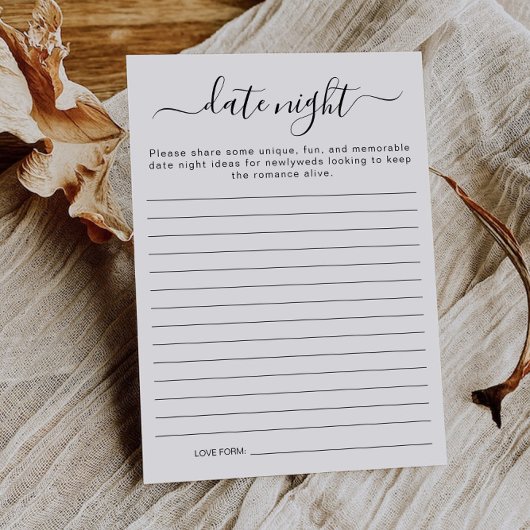 date night
Please share some unique, fun, and memorable
date night ideas for newlyweds looking to keep
the romance alive.
LOVE FORM: